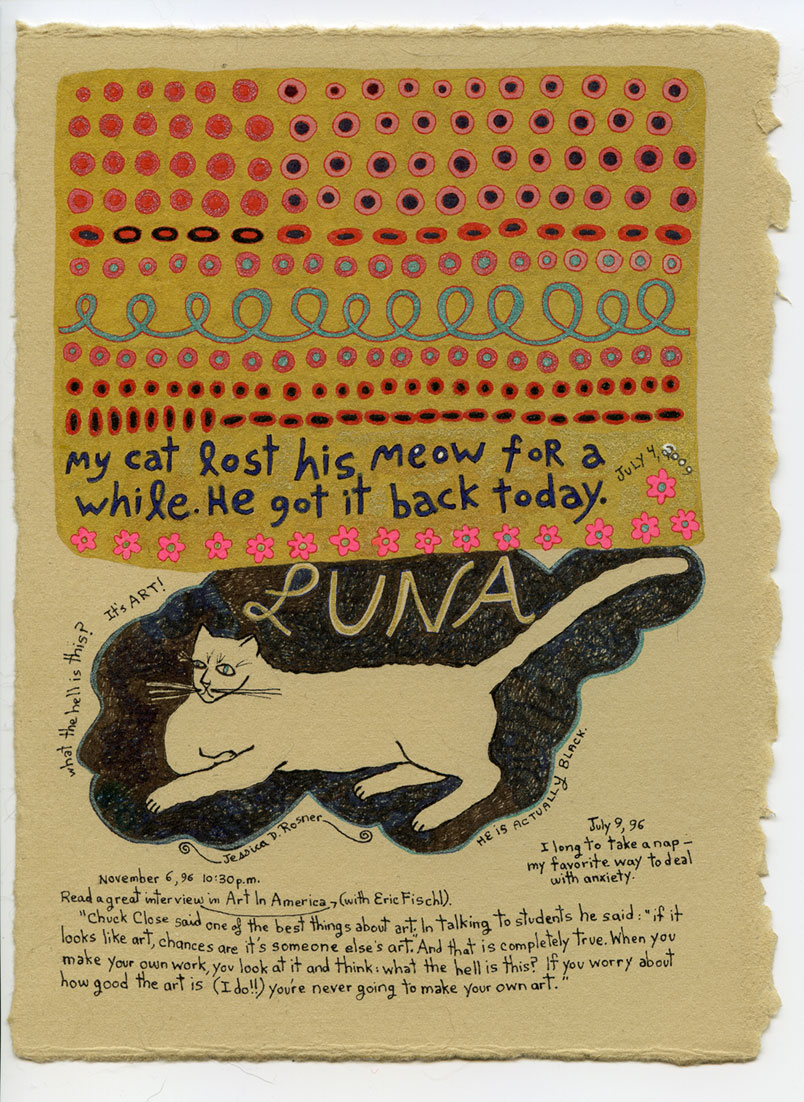 My cat lost his meow for a
while. He got it back today.
JULY 4, 2009
LUNA
It's ART!
what the hell is this?
Jessica D. Rosner
HE IS ACTUALLY BLACK.
July 9, 96
I long to take a nap –
my favorite way to deal
with anxiety.
November 6, 96 10:30 p.m.
Read a great interview in Art In America, (with Eric Fischl).
"Chuck Close said one of the best things about art. In talking to students he said: "if it
looks like art, chances are it's someone else's art." And that is completely true. When you
make your own work, you look at it and think: what the hell is this? If you worry about
how good the art is (I do!!) you're never going to make your own art."